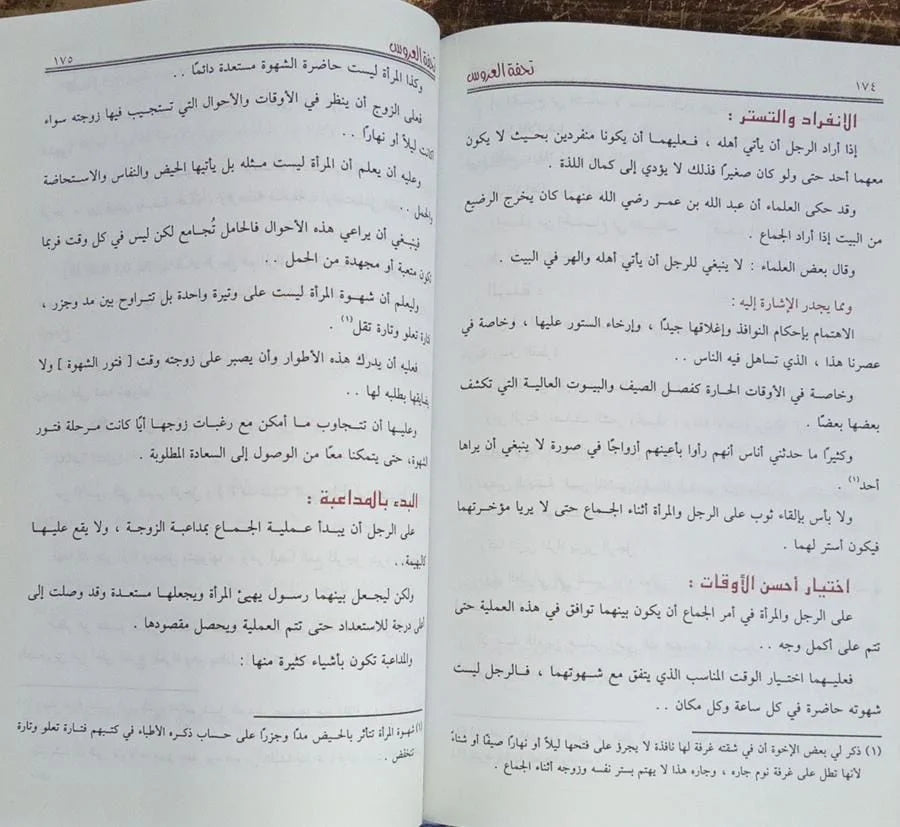 تحفة العروس
١٧٤
الانفراد والتستر :
إذا أراد الرجل أن يأتي أهله ، فعليهما أن يكونا منفردين بحيث لا يكون
معهما أحد حتى ولو كان صغيرًا فذلك لا يؤدي إلى كمال اللذة .
وقد حكى العلماء أن عبد الله بن عمر رضي الله عنهما كان يخرج الرضيع
من البيت إذا أراد الجماع .
وقال بعض العلماء : لا ينبغي للرجل أن يأتي أهله والهر في البيت .
ومما يجدر الإشارة إليه :
الاهتمام بإحكام النوافذ وإغلاقها جيدًا ، وإرخاء الستور عليها ، وخاصة في
عصرنا هذا ، الذي تساهل فيه الناس ..
وخاصة في الأوقات الحارة كفصل الصيف والبيوت العالية التي تكشف
بعضها بعضًا .
وكثيرًا ما حدثني أناس أنهم رأوا بأعينهم أزواجًا في صورة لا ينبغي أن يراها
أحد(١) .
ولا بأس بإلقاء ثوب على الرجل والمرأة أثناء الجماع حتى لا يريا مؤخرتهما
فيكون أستر لهما .
اختيار أحسن الأوقات :
على الرجل والمرأة في أمر الجماع أن يكون بينهما توافق في هذه العملية حتى
تتم على أكمل وجه ..
فعليهما اختيار الوقت المناسب الذي يتفق مع شهوتهما ، فالرجل ليست
شهوته حاضرة في كل ساعة وكل مكان ..
(١) ذكر لي بعض الإخوة أن في شقته غرفة لها نافذة لا يجرؤ على فتحها ليلاً أو نهارًا صيفًا أو شتاءً
لأنها تطل على غرفة نوم جاره ، وجاره هذا لا يهتم بستر نفسه وزوجه أثناء الجماع .
تحفة العروس
١٧٥
وكذا المرأة ليست حاضرة الشهوة مستعدة دائمًا ..
فعلى الزوج أن ينظر في الأوقات والأحوال التي تستجيب فيها زوجته سواء
كانت ليلاً أو نهارًا ..
وعليه أن يعلم أن المرأة ليست مثله بل يأتيها الحيض والنفاس والاستحاضة
والحمل ..
فينبغي أن يراعي هذه الأحوال فالحامل تُجامع لكن ليس في كل وقت فربما
تكون متعبة أو مجهدة من الحمل ..
وليعلم أن شهوة المرأة ليست على وتيرة واحدة بل تتراوح بين مد وجزر ،
تارة تعلو وتارة تقل(١) .
فعليه أن يدرك هذه الأطوار وأن يصبر على زوجته وقت [ فتور الشهوة ] ولا
يضايقها بطلبه لها ..
وعليها أن تتجاوب ما أمكن مع رغبات زوجها أيًا كانت مرحلة فتور
الشهوة، حتى يتمكنا معًا من الوصول إلى السعادة المطلوبة .
البدء بالمداعبة :
على الرجل أن يبدأ عملية الجماع بمداعبة الزوجة ، ولا يقع عليها
كالبهيمة..
ولكن ليجعل بينهما رسول يهيئ المرأة ويجعلها مستعدة وقد وصلت إلى
أعلى درجة للاستعداد حتى تتم العملية ويحصل مقصودها .
والمداعبة تكون بأشياء كثيرة منها :
(١) شهوة المرأة تتأثر بالحيض مدًا وجزرًا على حساب ذكره الأطباء في كتبهم فتارة تعلو وتارة
تنخفض .